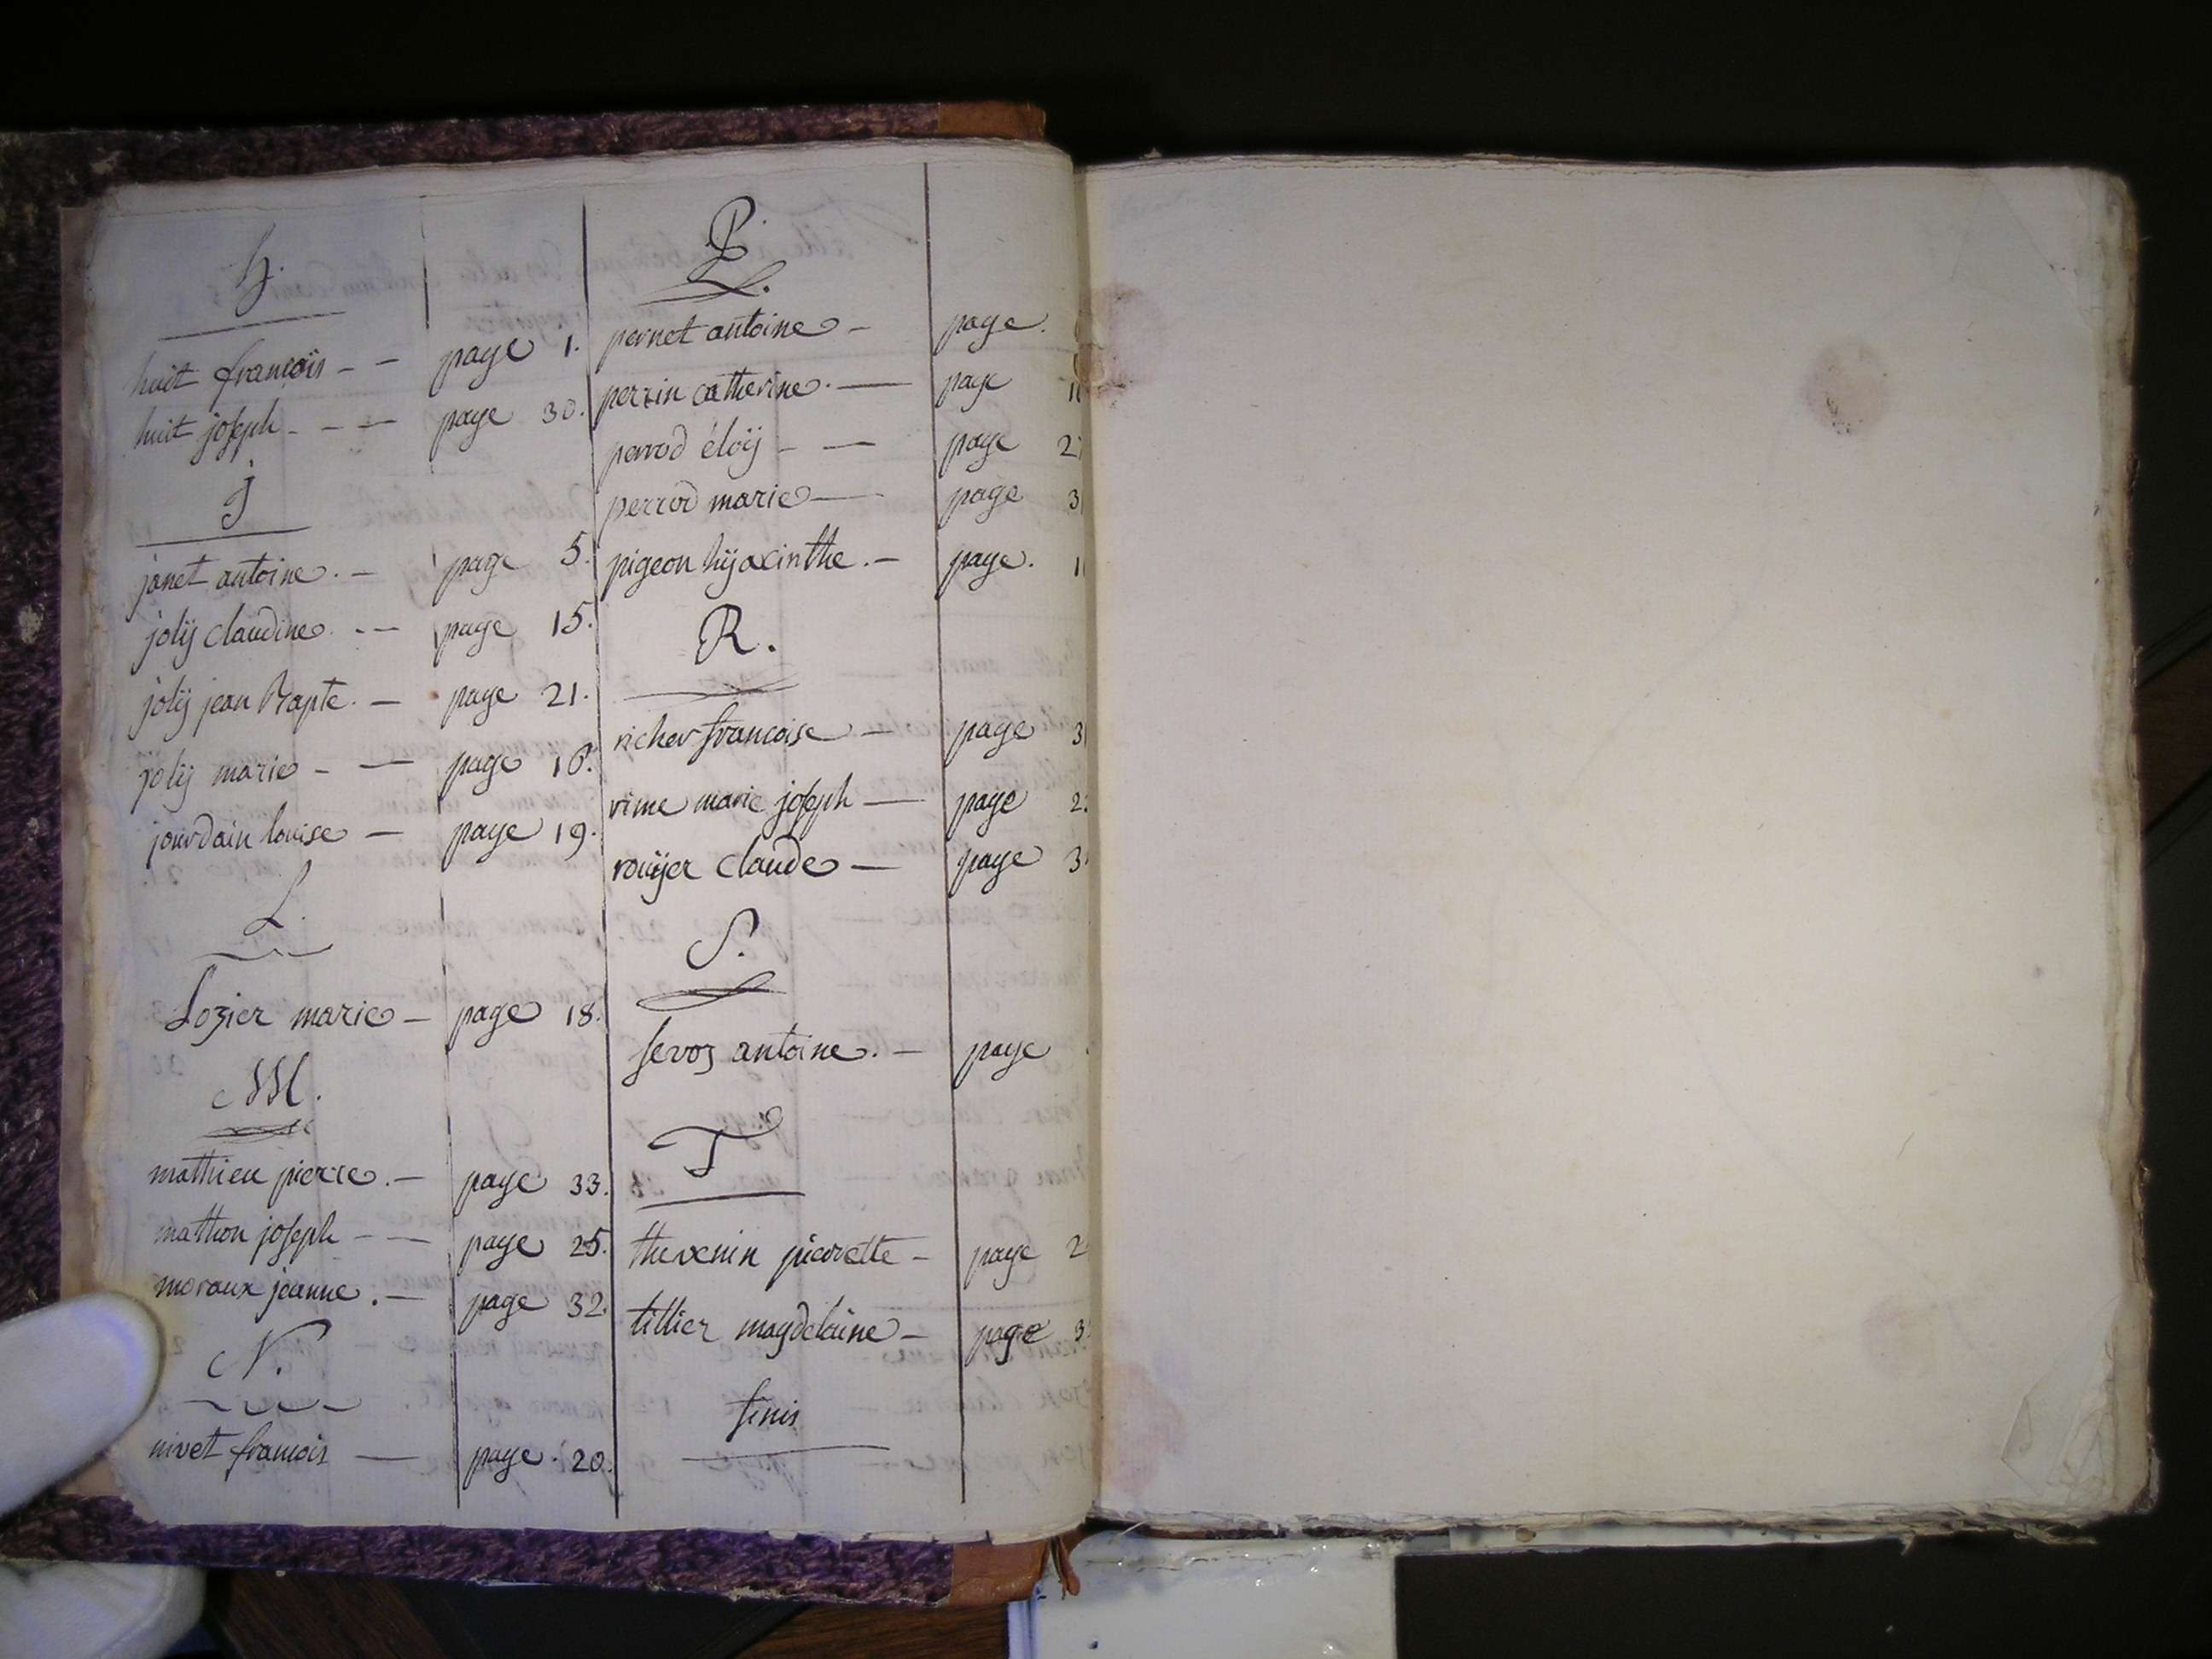 h.
huit françois - - page 1.
huit joseph - - - page 30.
J
janet antoine. - page 5.
jolÿ claudine - - page 15.
jolÿ jean Bapte. - page 21.
jolÿ marie - - page 18.
jourdain louise - page 19.
L.
Lozier marie - page 18.
M.
mathieu pierre. - page 33.
mathon joseph - - page 25.
moraux jeanne. - page 32.
N.
nivet francois - page. 20.
P.
pernet antoine - page.
perrin catherine. - page
perrod éloÿ - - page
perrod marie - page
pigeon hÿacinthe. - page.
R.
richer francoise - page
rime marie joseph - page
rouÿer claude - page
S.
sevoz antoine. - page
T
thevenin pierrette - page
tillier magdelaine - page
finis